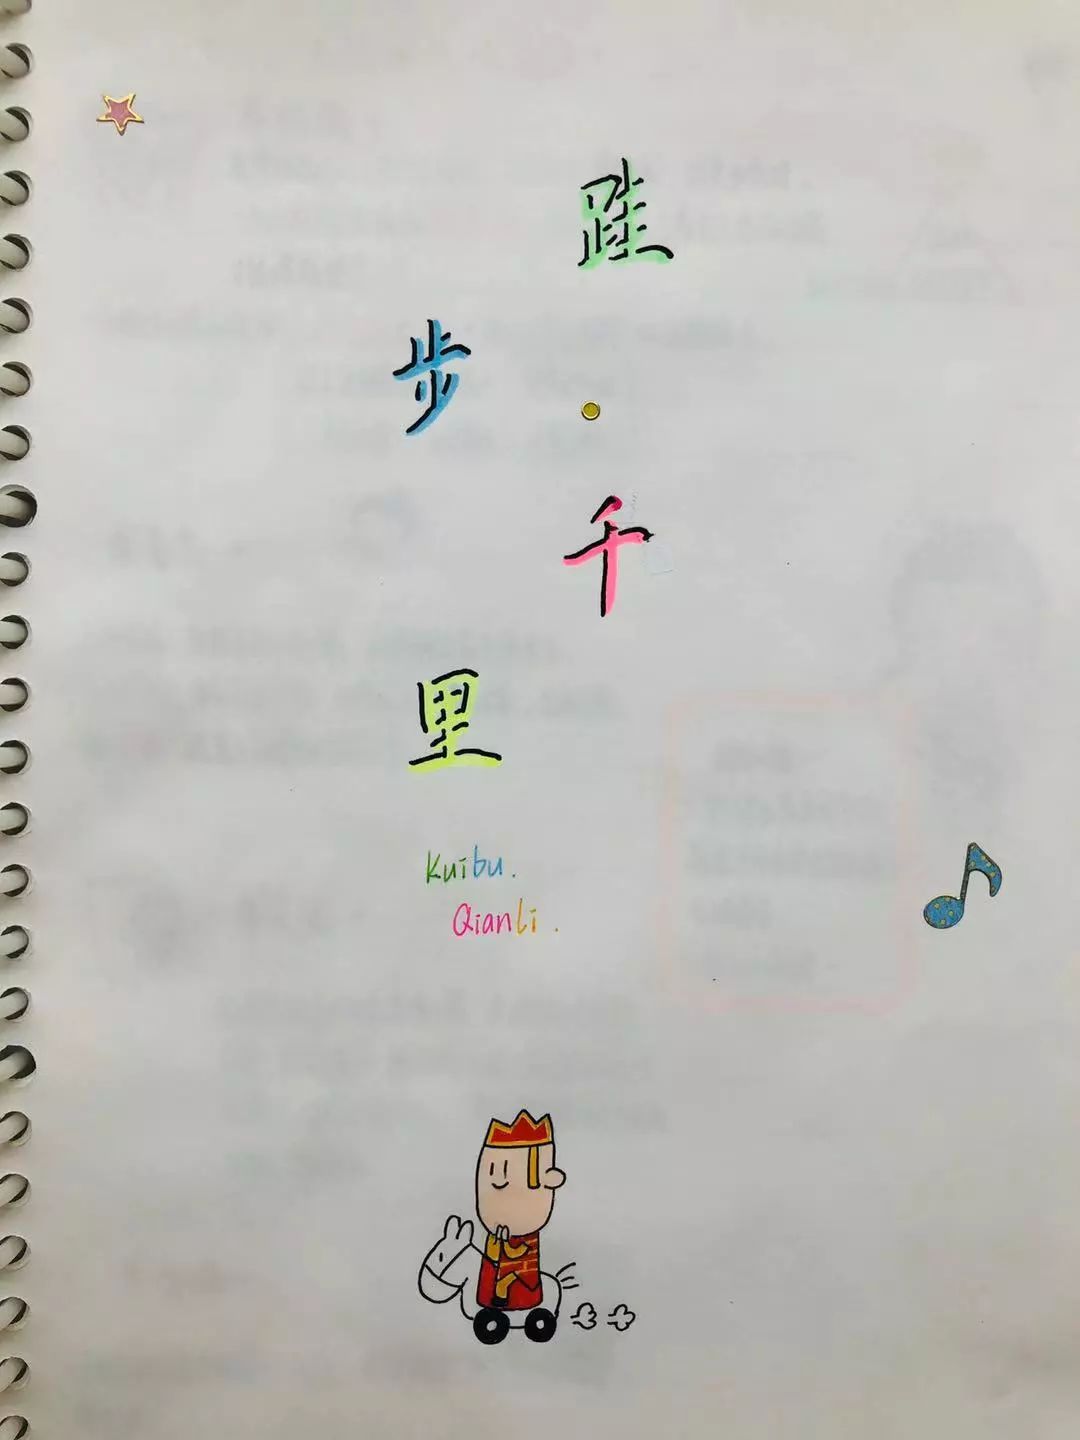 跬
步
·
千
里
Kuibu.
Qianli.